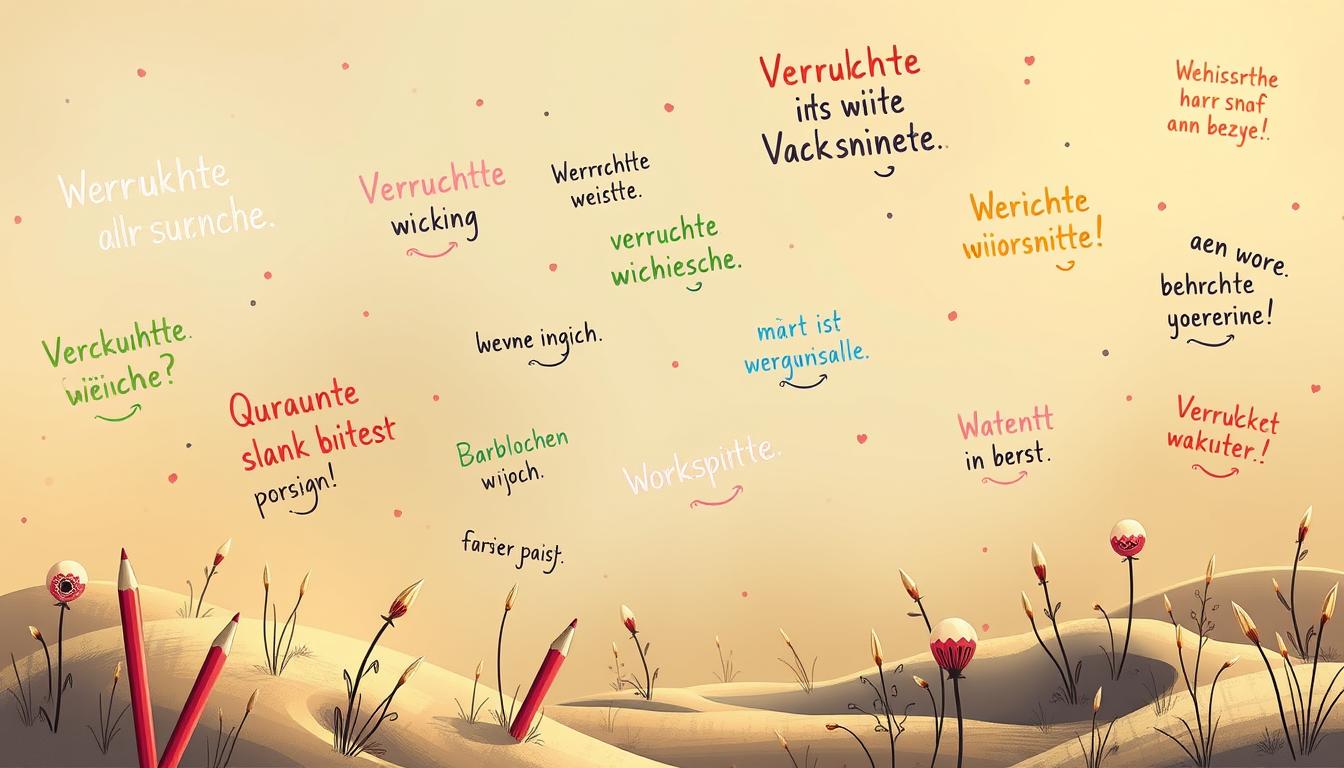 Verrulchte
irts wiite
Vacksninete.
Wehissrthe
harr snaf
ann bezye!.
Werrukhte
allr surnche.
Verruchtte
wicking
Werrrchtte
weistte.
verruchte
wichiesche.
Werichte
wiiorsnitte!
aen wore.
behrchte
yoererine!
Verckuihtte.
wiëiiche?
wevne ingich.
märt ist
wergunsalle.
Quraunte
slank biitest
porsign!
Barblochen
wijoch.
Workspirtte.
Watentt
in berst.
Verrukket
wakuter.!
farsier paist.